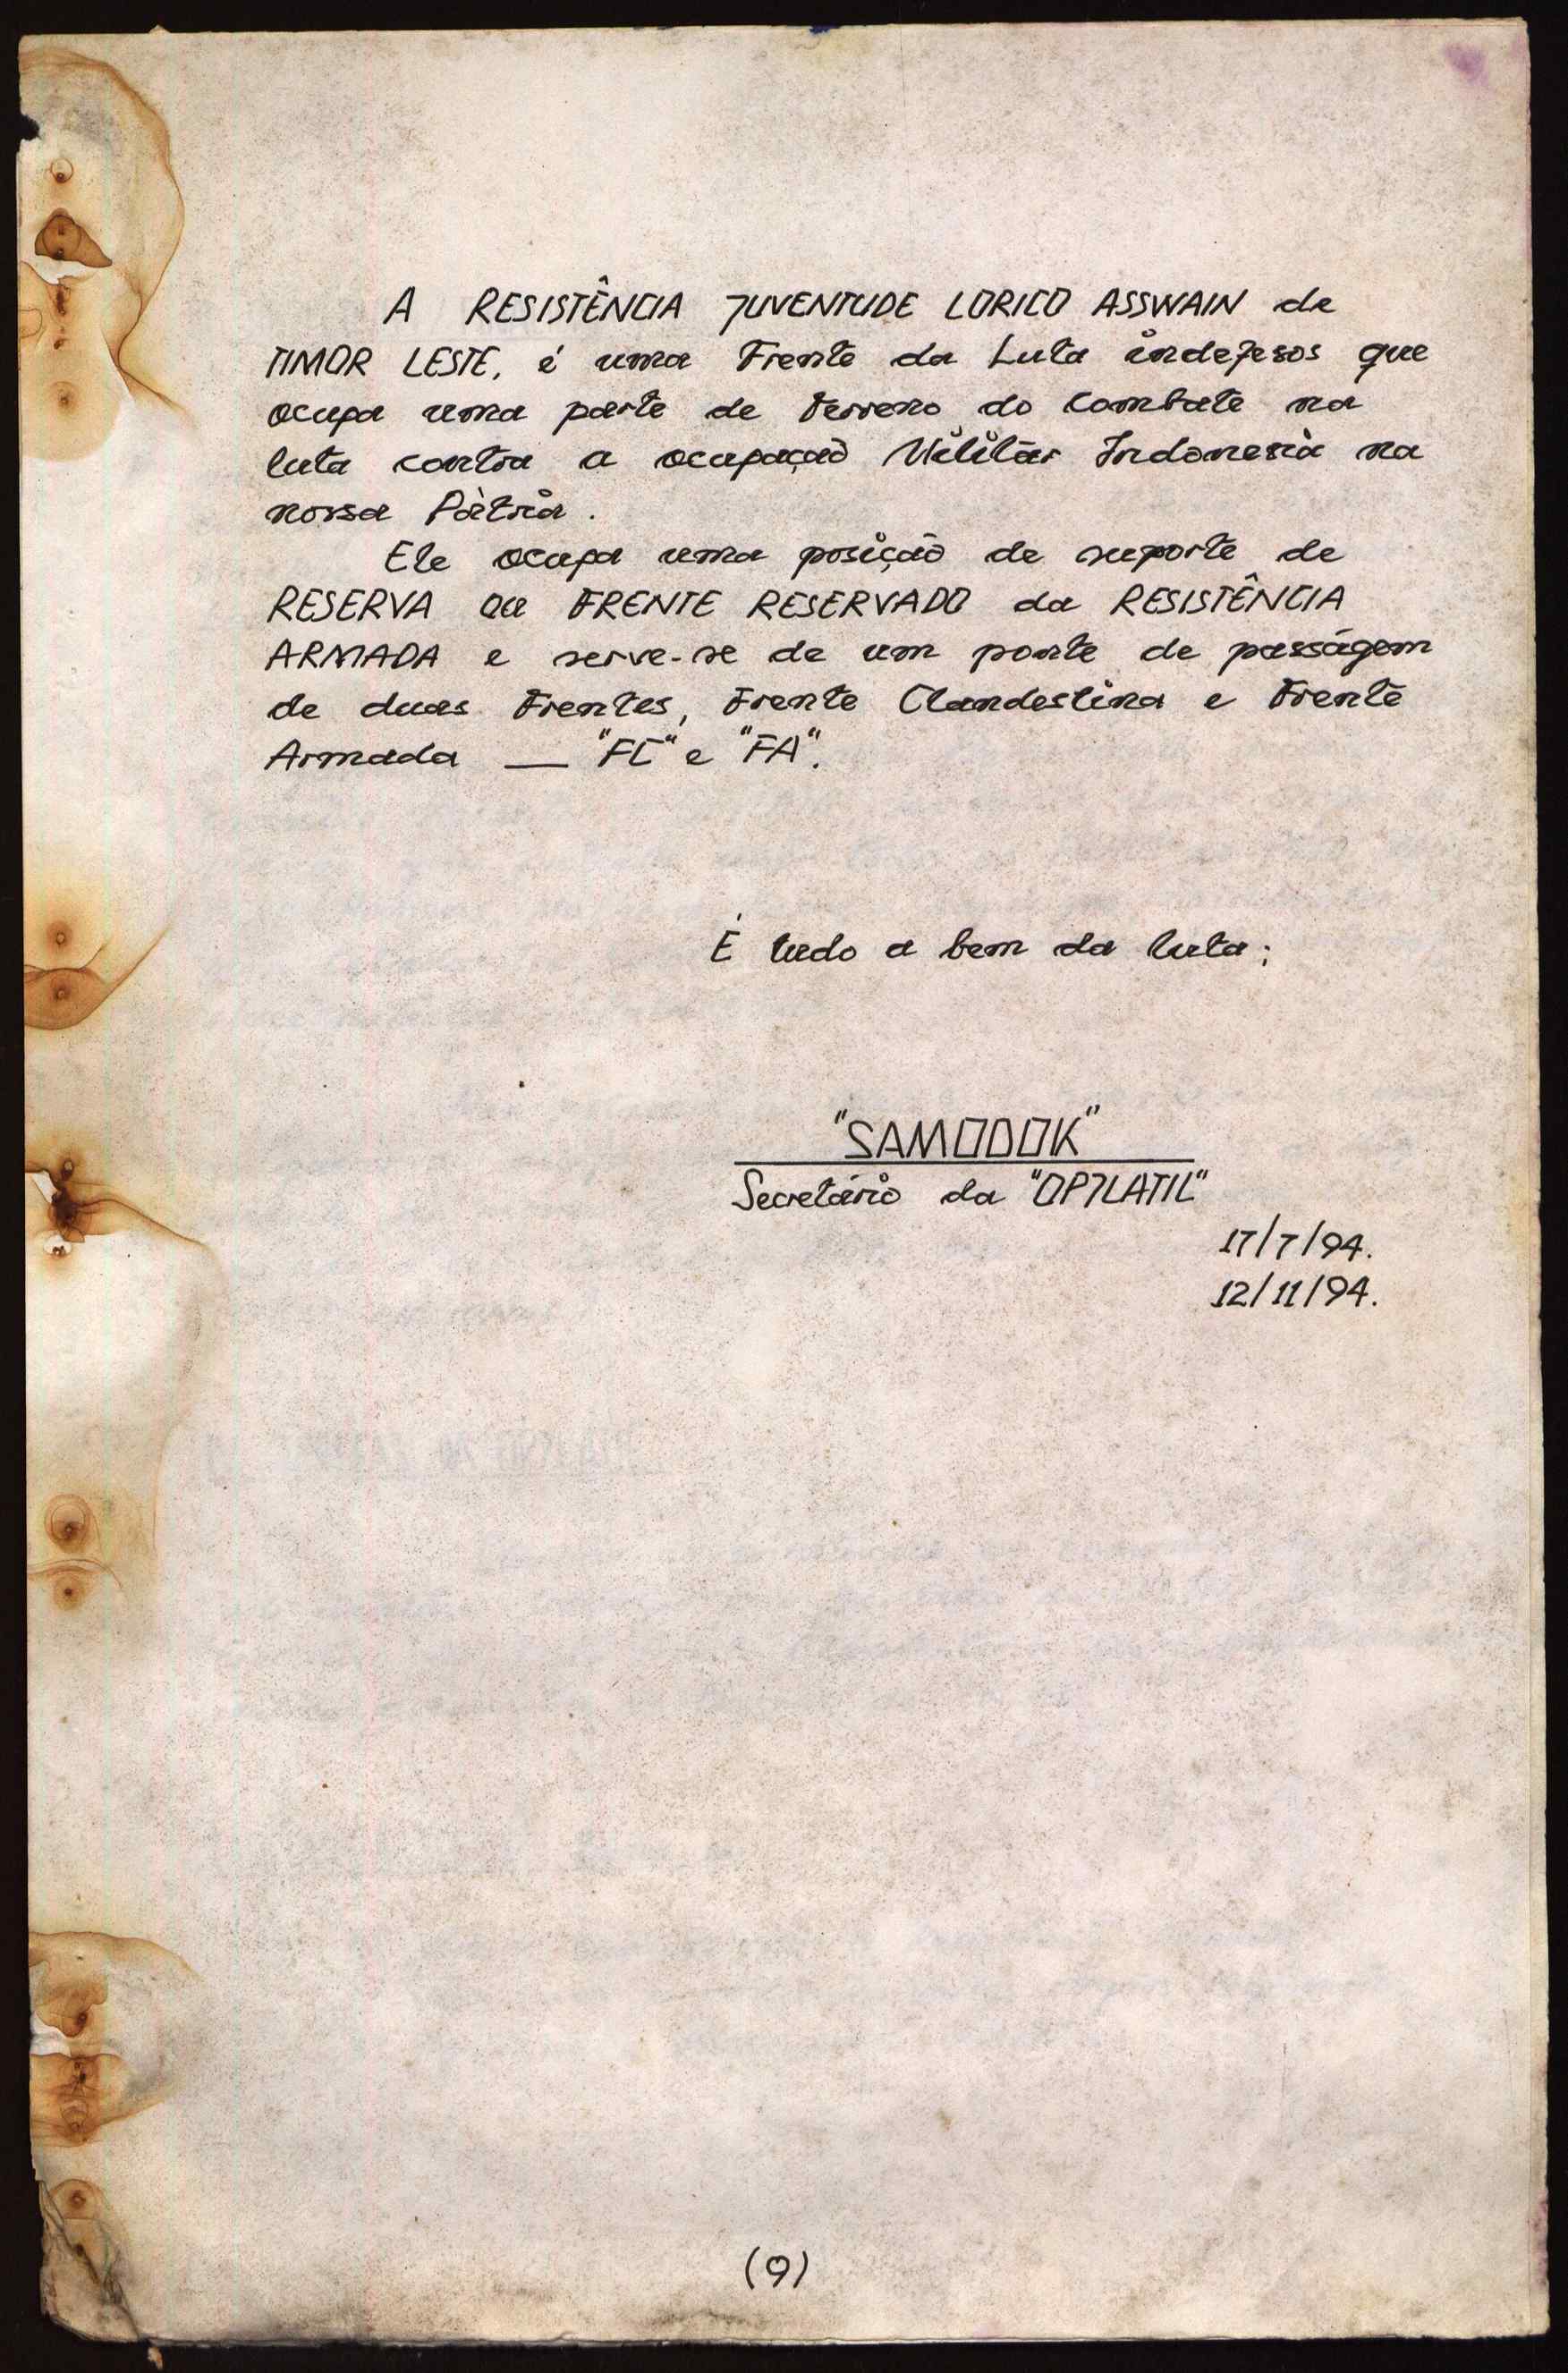 A RESISTÊNCIA JUVENTUDE LORICO ASSWAIN de
TIMOR LESTE, é uma Frente da Luta indefesos que
ocupa uma parte de terreno do combate na
luta contra a ocupação Militar Indonesia na
nossa Pàtria.
Ele ocupa uma posição de suporte de
RESERVA OU FRENTE RESERVADO da RESISTÊNCIA
ARMADA e serve-se de um ponte de passágem
de duas Frentes, Frente Clandestina e Frente
Armada — "FC" e "FA".
É tudo a bem da luta;
"SAMODOK"
Secretário da "OPJLATIL"
17/7/94.
12/11/94.
(9)